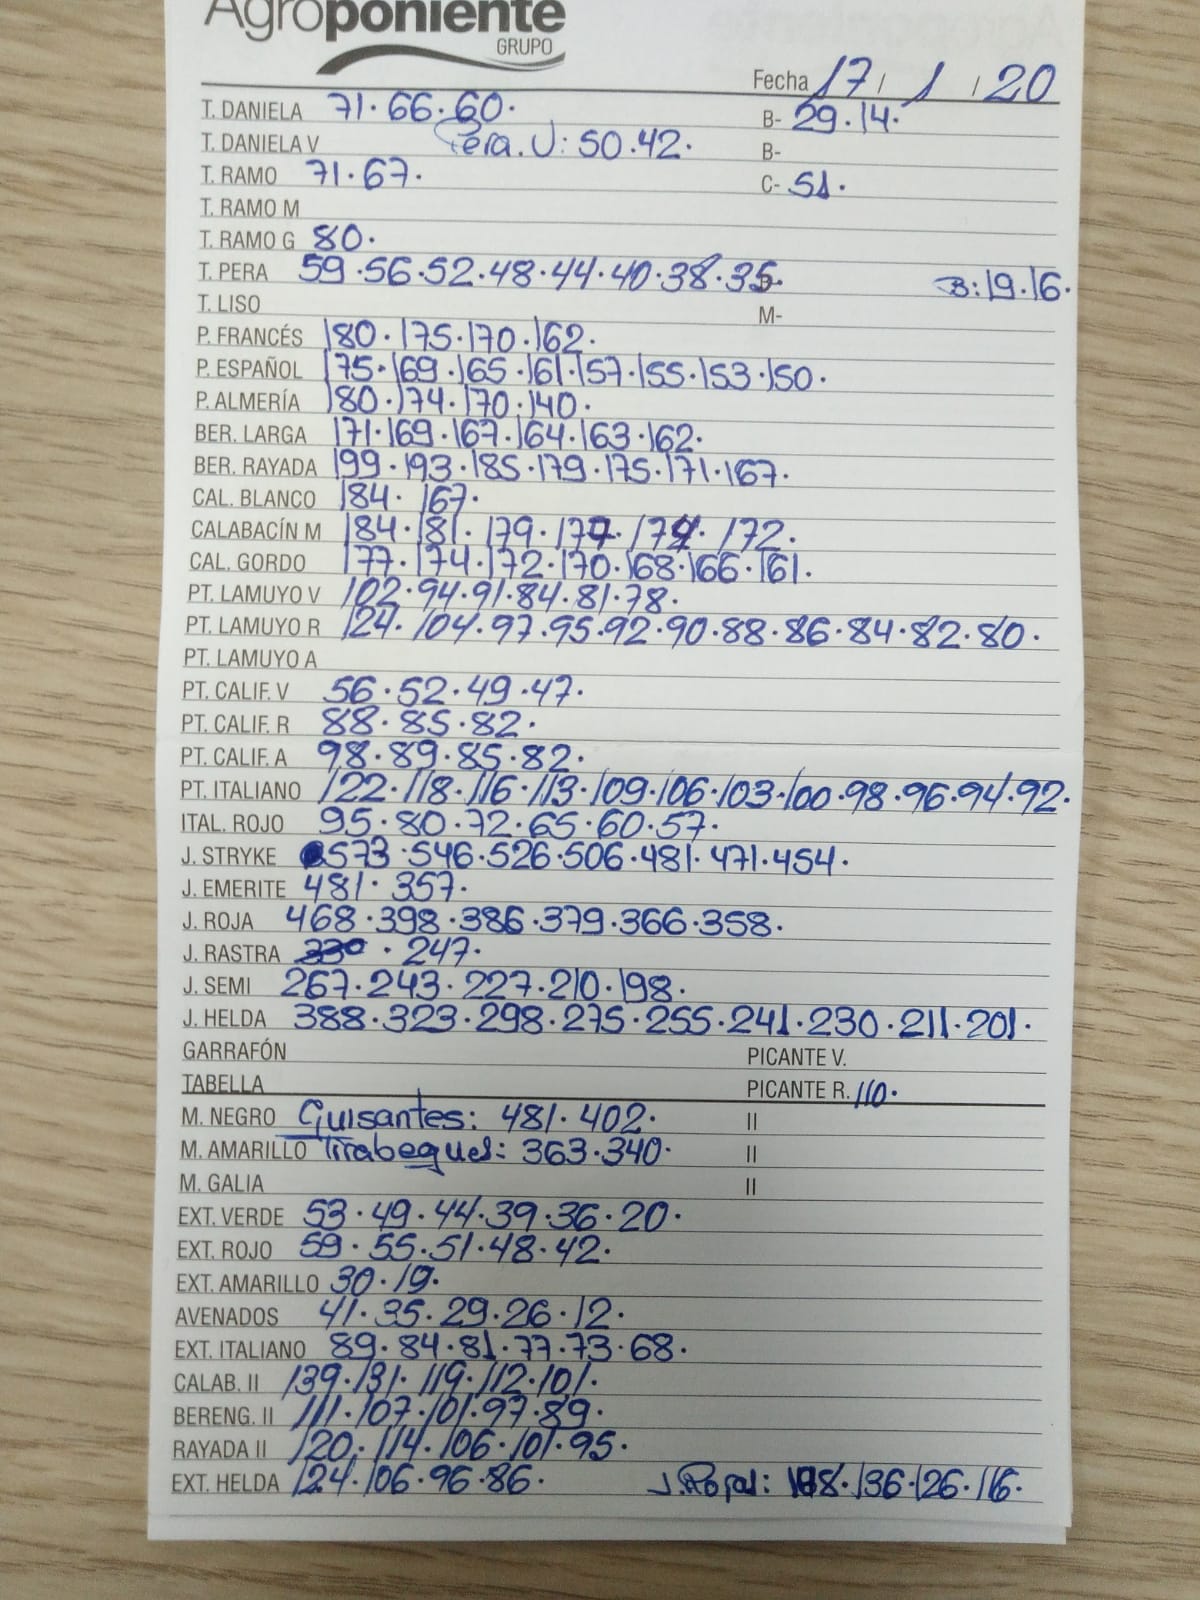 Agroponiente
GRUPO
Fecha 17 / 1 / 20
T. DANIELA 71.66.60. B- 29.14.
T. DANIELA V Pera.V: 50.42. B-
T. RAMO 71.67. C- 51.
T. RAMO M
T. RAMO G 80.
T. PERA 59.56.52.48.44.40.38.35. B:19.16.
T. LISO M-
P. FRANCÉS 180.175.170.162.
P. ESPAÑOL 175.169.165.161.157.155.153.150.
P. ALMERÍA 180.174.170.140.
BER. LARGA 171.169.167.164.163.162.
BER. RAYADA 199.193.185.179.175.171.167.
CAL. BLANCO 184. 167.
CALABACÍN M 184.181.179.177.174.172.
CAL. GORDO 177.174.172.170.168.166.161.
PT. LAMUYO V 102.94.91.84.81.78.
PT. LAMUYO R 124.104.97.95.92.90.88.86.84.82.80.
PT. LAMUYO A
PT. CALIF. V 56.52.49.47.
PT. CALIF. R 88.85.82.
PT. CALIF. A 98.89.85.82.
PT. ITALIANO 122.118.116.113.109.106.103.100.98.96.94.92.
ITAL. ROJO 95.80.72.65.60.57.
J. STRYKE 573.546.526.506.481.471.454.
J. EMERITE 481.357.
J. ROJA 468.398.386.379.366.358.
J. RASTRA 330.247.
J. SEMI 267.243.227.210.198.
J. HELDA 388.323.298.275.255.241.230.211.201.
GARRAFÓN PICANTE V.
TABELLA PICANTE R. 110.
M. NEGRO Guisantes: 481.402. II
M. AMARILLO Tirabeques: 363.340. II
M. GALIA II
EXT. VERDE 53.49.44.39.36.20.
EXT. ROJO 59.55.51.48.42.
EXT. AMARILLO 30.19.
AVENADOS 41.35.29.26.12.
EXT. ITALIANO 89.84.81.77.73.68.
CALAB. II 139.131.119.112.101.
BERENG. II 111.107.101.97.89.
RAYADA II 120.114.106.101.95.
EXT. HELDA 124.106.96.86. J.Rojas: 136.126.116.